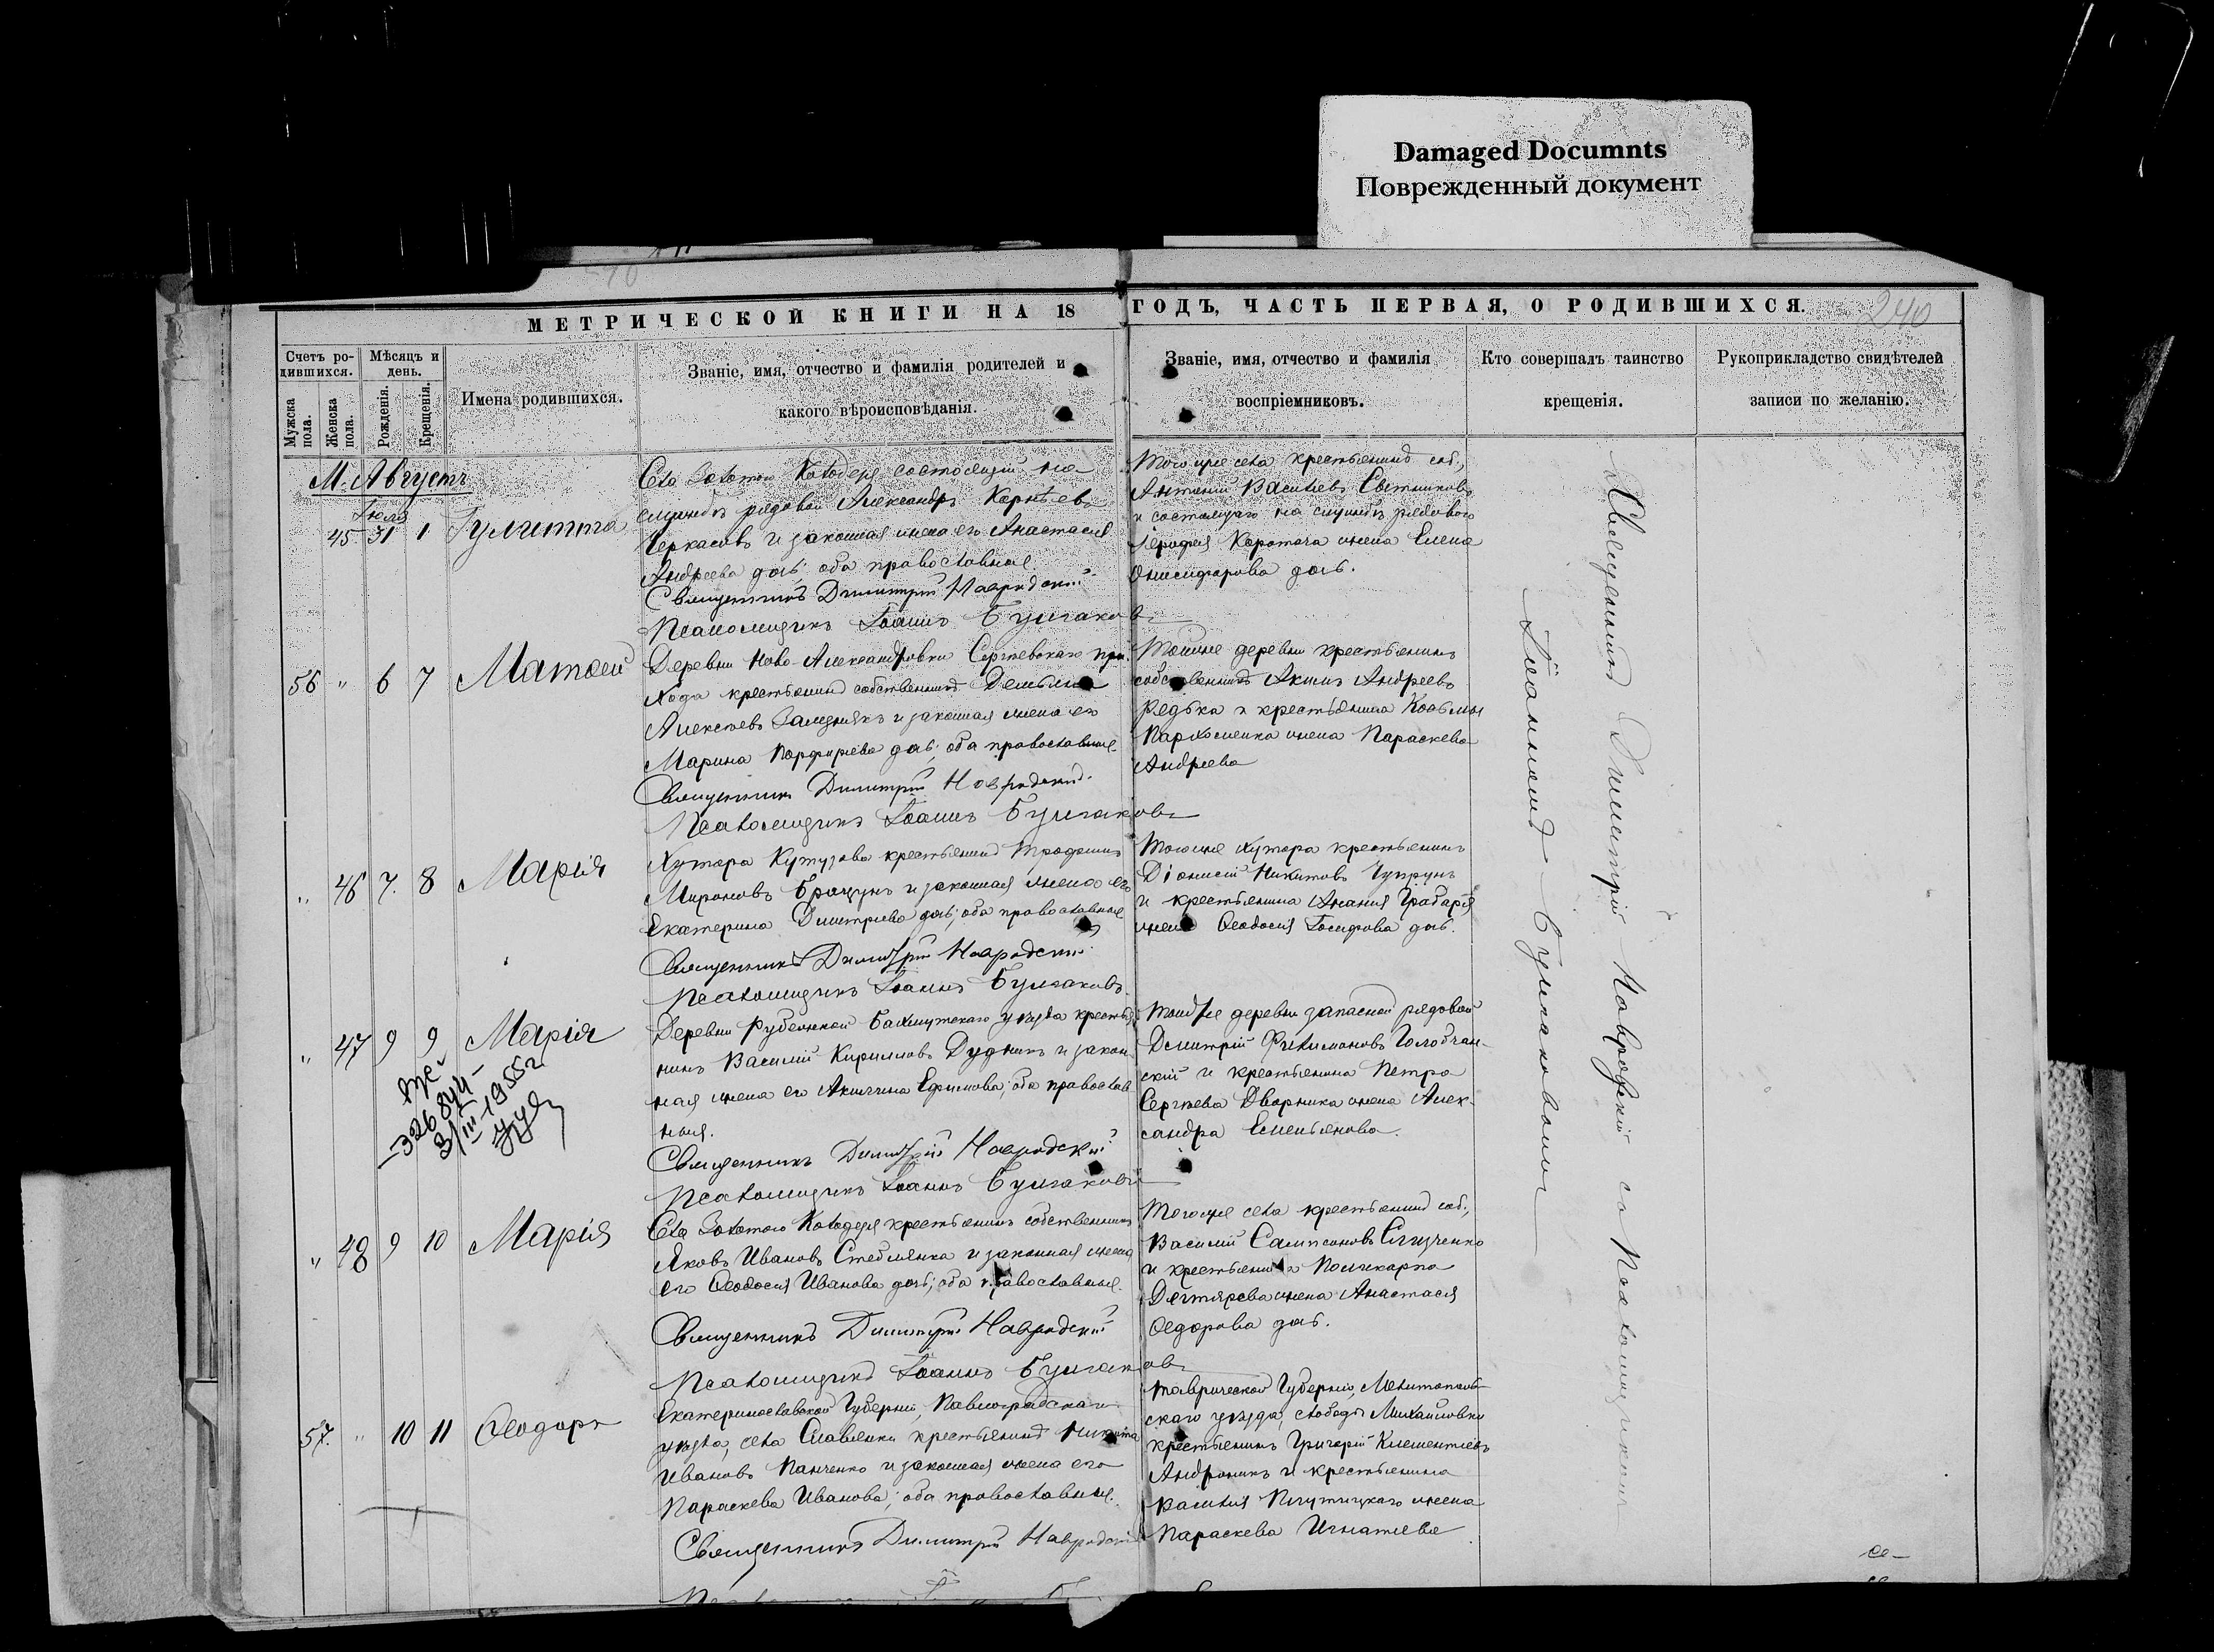 Damaged Documnts
Поврежденный документ
МЕТРИЧЕСКОЙ КНИГИ НА 18 ГОДЪ, ЧАСТЬ ПЕРВАЯ, О РОДИВШИХСЯ.
240
Счетъ ро-
дившихся.
Мужска
пола.
Женска
пола.
Мѣсяцъ и
день.
Рожденія.
Крещенія.
Имена родившихся.
Званіе, имя, отчество и фамилія родителей и
какого вѣроисповѣданія.
Званіе, имя, отчество и фамилія
воспріемниковъ.
Кто совершалъ таинство
крещенія.
Рукоприкладство свидѣтелей
записи по желанію.
М. Августъ
Іюля
45 31 1 Іулитта
Села Золотого Колодезя состоящій на
службѣ рядовой Александръ Корнѣевъ
Черкасовъ и законная жена его Анастасія
Андреева дочь; оба православные
Священникъ Димитрій Навродскій
Псаломщикъ Іоаннъ Булгаковъ
Того же села крестьянинъ соб.,
Антоній Васильевъ Свѣтликовъ
и состоящаго на службѣ рядового
Іерофея Коротача жена Елена
Онисифорова дочь.
56 " 6 7 Матѳей
Деревни Ново-Александровки Сергѣевскаго при-
хода крестьянинъ собственникъ Демьянъ
Алексѣевъ и законная жена его
Марина Порфирьева дочь; оба православные.
Священникъ Димитрій Навродскій.
Псаломщикъ Іоаннъ Булгаковъ
Той же деревни крестьянинъ
собственникъ Акимъ Андреевъ
Редька и крестьянина Косьмы
Пархоменка жена Параскева
Андреева
" 46 7. 8 Марія
Хутора Кутузова крестьянинъ Трофимъ
Мироновъ и законная жена его
Екатерина Димитріева дочь; оба православные
Священникъ Димитрій Навродскій
Псаломщикъ Іоаннъ Булгаковъ.
Того же хутора крестьянинъ
Діонисій Никитовъ Чупрунъ
и крестьянина Ананія Грабаря
жена Ѳеодосія Іосифова дочь.
" 47 9 9 Марія
-326844-
3/III-1955г
Деревни Рубежной Бахмутскаго уѣзда крестья-
нинъ Василій Кирилловъ Дудникъ и закон-
ная жена его Акилина Ефимова; оба православ-
ныя.
Священникъ Димитрій Навродскій
Псаломщикъ Іоаннъ Булгаковъ
Той же деревни запасной рядовой
Дмитрій Филимоновъ Голобчан-
скій и крестьянина Петра
Сергѣева Дворника жена Алек-
сандра Емельянова.
" 48 9 10 Марія
Села Золотого Колодезя крестьянинъ собственникъ
Яковъ Ивановъ Стеблянка и законная жена
его Ѳеодосія Иванова дочь; оба православные.
Священникъ Димитрій Навродскій
Псаломщикъ Іоаннъ Булгаковъ
Того же села крестьянинъ соб.,
Василій Сампсоновъ
и крестьянина Поликарпа
Дегтярева жена Анастасія
Ѳедорова дочь.
57. " 10 11 Ѳеодоръ
Екатеринославской Губерніи, Павлоградскаго
уѣзда, села Славянки крестьянинъ Никита
Ивановъ Панченко и законная жена его
Параскева Иванова; оба православные.
Священникъ Димитрій Навродскій
Таврической Губерніи, Мелитополь-
скаго уѣзда, слободы Михайловки
крестьянинъ Григорій Климентіевъ
Андроникъ и крестьянина
Василія Плутицкаго жена
Параскева Игнатіева
Священникъ Димитрій Навродскій съ Псаломщикомъ
Іоанномъ Булгаковымъ